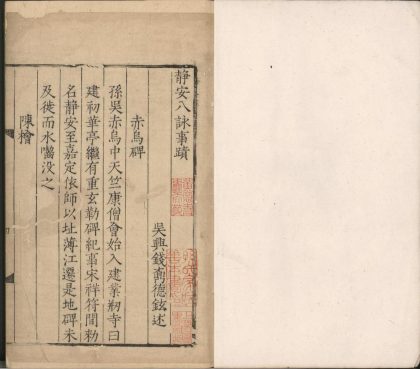 静安八詠事蹟
吳興錢鼒德鉉述
赤烏碑
孫吳赤烏中天竺康僧會始入建業剏寺曰
建初華亭繼有重玄勒碑紀事宋祥符間勅
名静安至嘉定依師以址薄江遷是地碑未
及徙而水嚙没之
陳檜